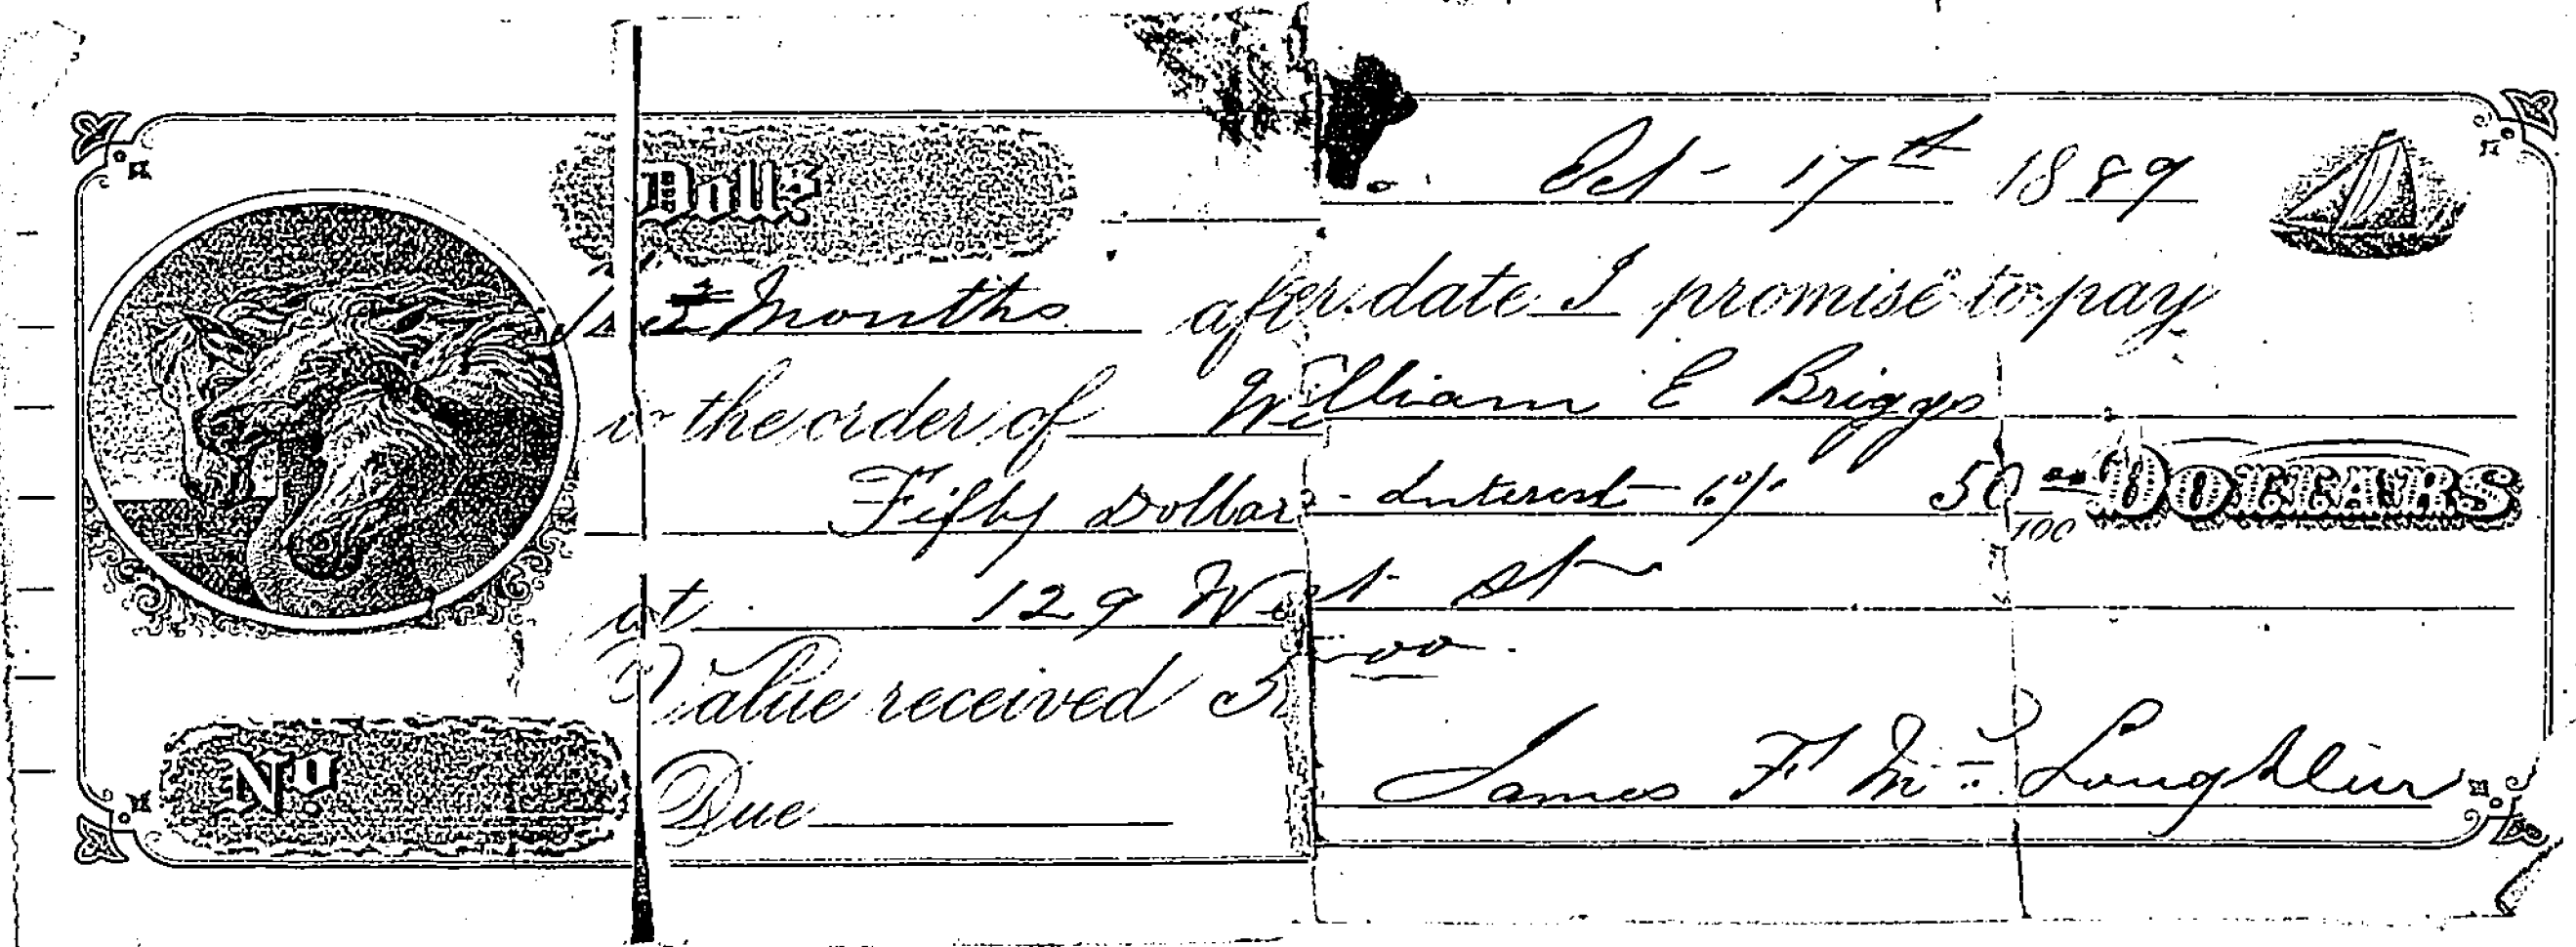 Dolls. Oct - 17th 1889
Months after date I promise to pay
to the order of William E Briggs
Fifty Dollars - Interest 6% 50 00/100 DOLLARS
at 129 West St
Value received
No. Due James F Mc Loughlin